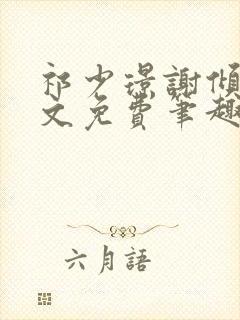 祁少璟謝傾
文免費筆趣
六月語